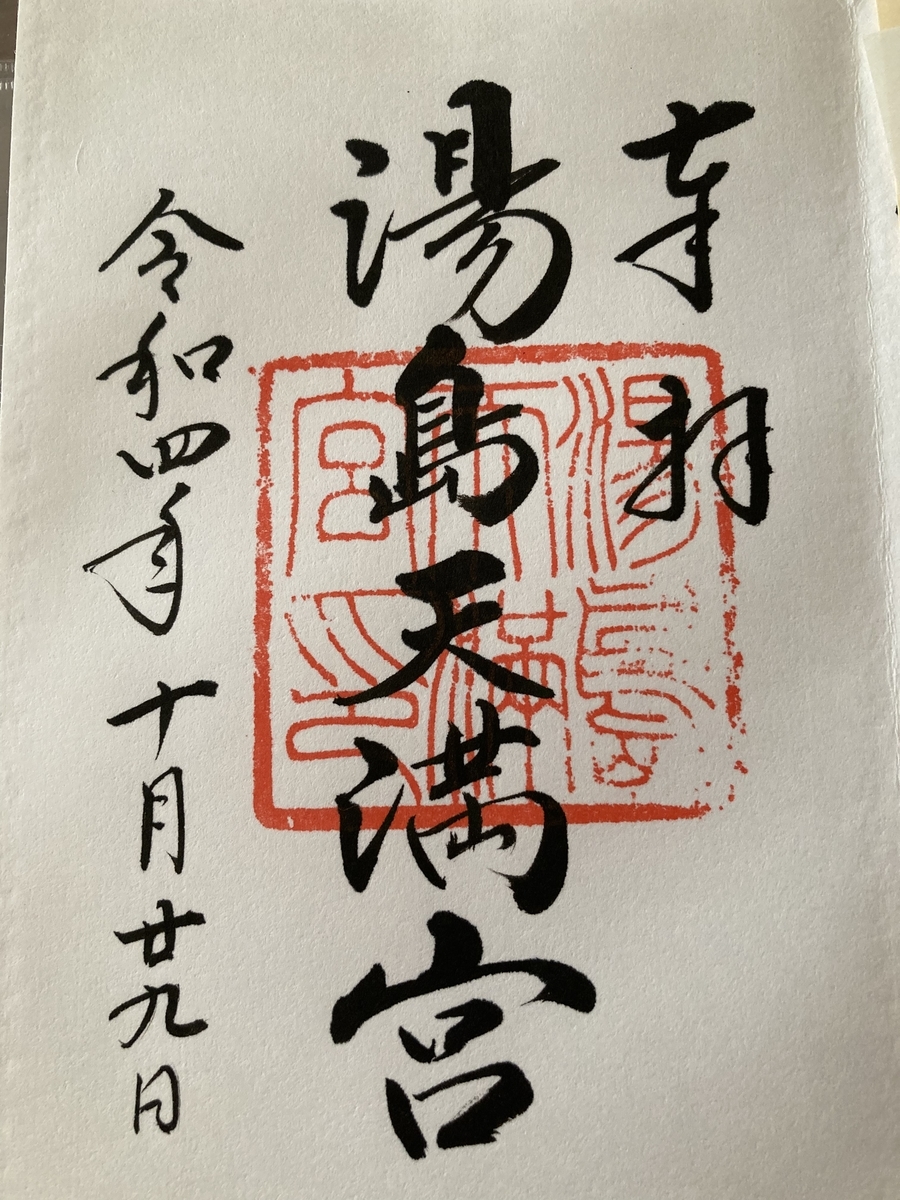 奉拝
湯島天満宮
湯島天満宮印
令和四年十月廿九日